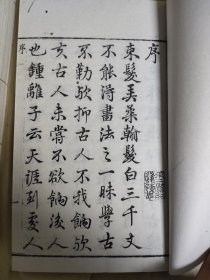 序
束髮弄柔翰髮白三千丈
不能得書法之一昧學古
不勤歟抑古人不我餉歟
古人未嘗不欲餉後人
也鍾離子云天涯到處人
序